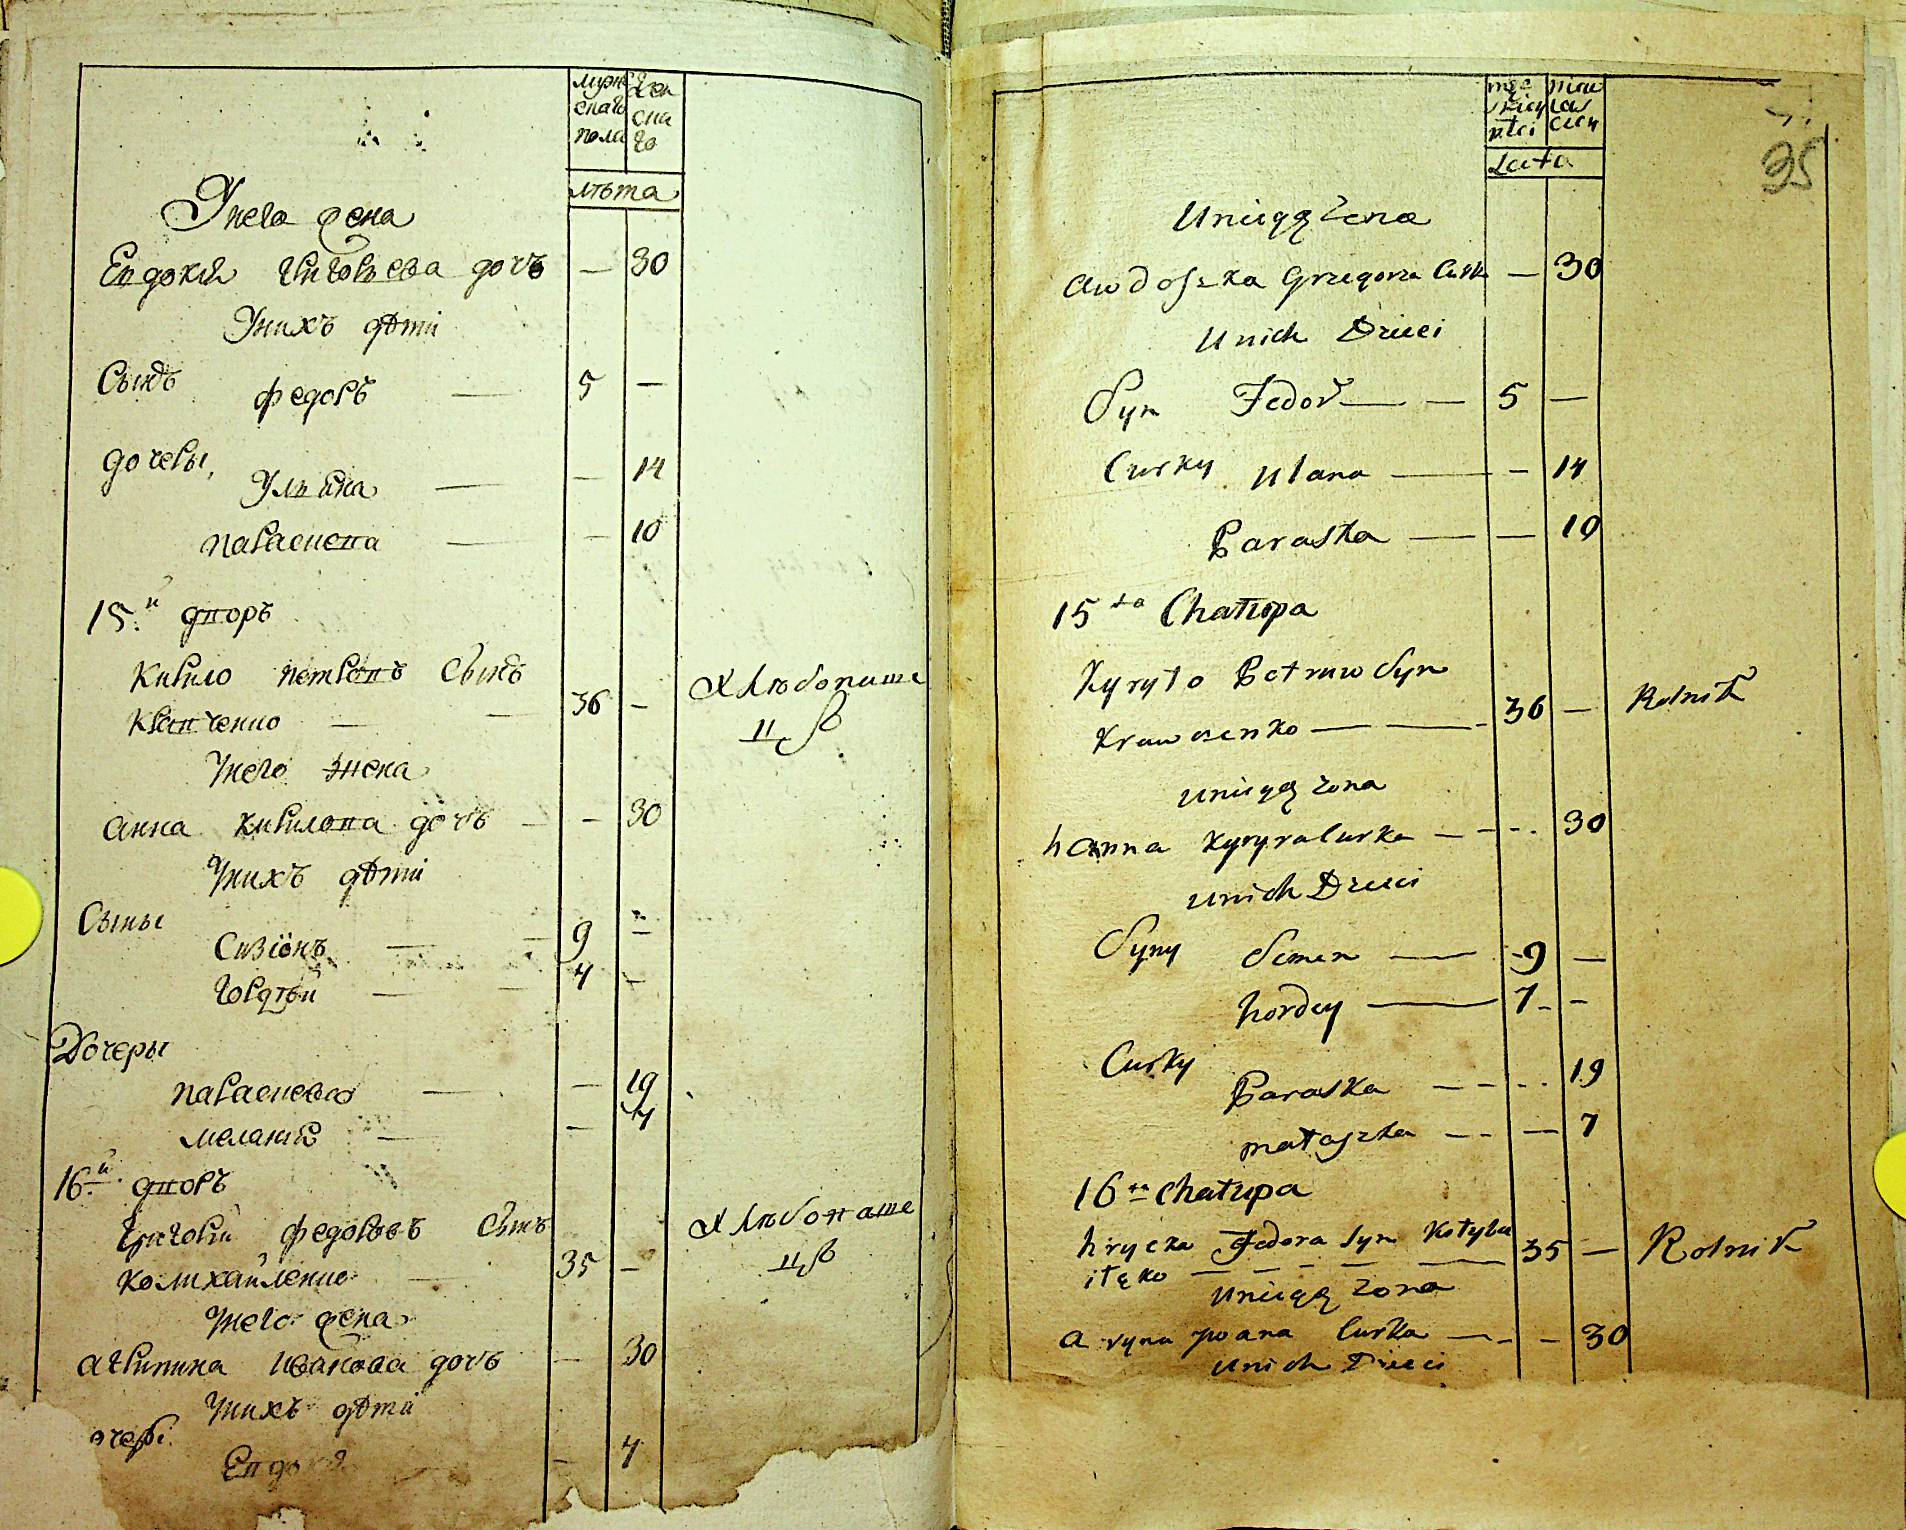 мужескаго пола
женскаго
лѣта
У него жена
Евдокія Григорьева дочъ — 30
У нихъ дѣти
Сынъ Федоръ — 5 —
дочеры,
Ульяна — — 14
Параскева — — 10
15.й дворъ
Кирило Петровъ Сынъ
Кравченко — — 36 — Хлѣбопашецъ
У него жена
Анна Кирилова дочъ — — 30
У нихъ дѣти
Сыны
Сизіонъ — — 9 —
Гордѣй — — 7 —
Дочеры
Параскева — — 19
Меланія — — 7
16.й дворъ
Григорій Федоровъ Сынъ
Колихайленко — 35 — Хлѣбопашецъ
У него жена
Агрипина Иванова дочъ — 30
У нихъ дѣти
очеры
Евдо — 7
35
Lata
Uniegǫ Zona
Awdoszka Grzegorza Curk — 30
Unich Dzieci
Syn Fedor — — 5 —
Curky Ulana — — 14
Paraska — — 10
15ta Chałupa
Kyryło Petruw Syn
Krawczenko — 36 — Rolnik
Uniegǫ zona
hanna Kyryła Curka — — 30
Unich Dzieci
Syny Semen — 9 —
hordey — 7 — —
Curky
Paraska — — 19
Małaszka — — — 7
16ta Chałupa
hrycko Fedora Syn
35 — Rolnik
Uniegǫ zona
Aryna Jwana Curka — — — 30
Unich Dzieci